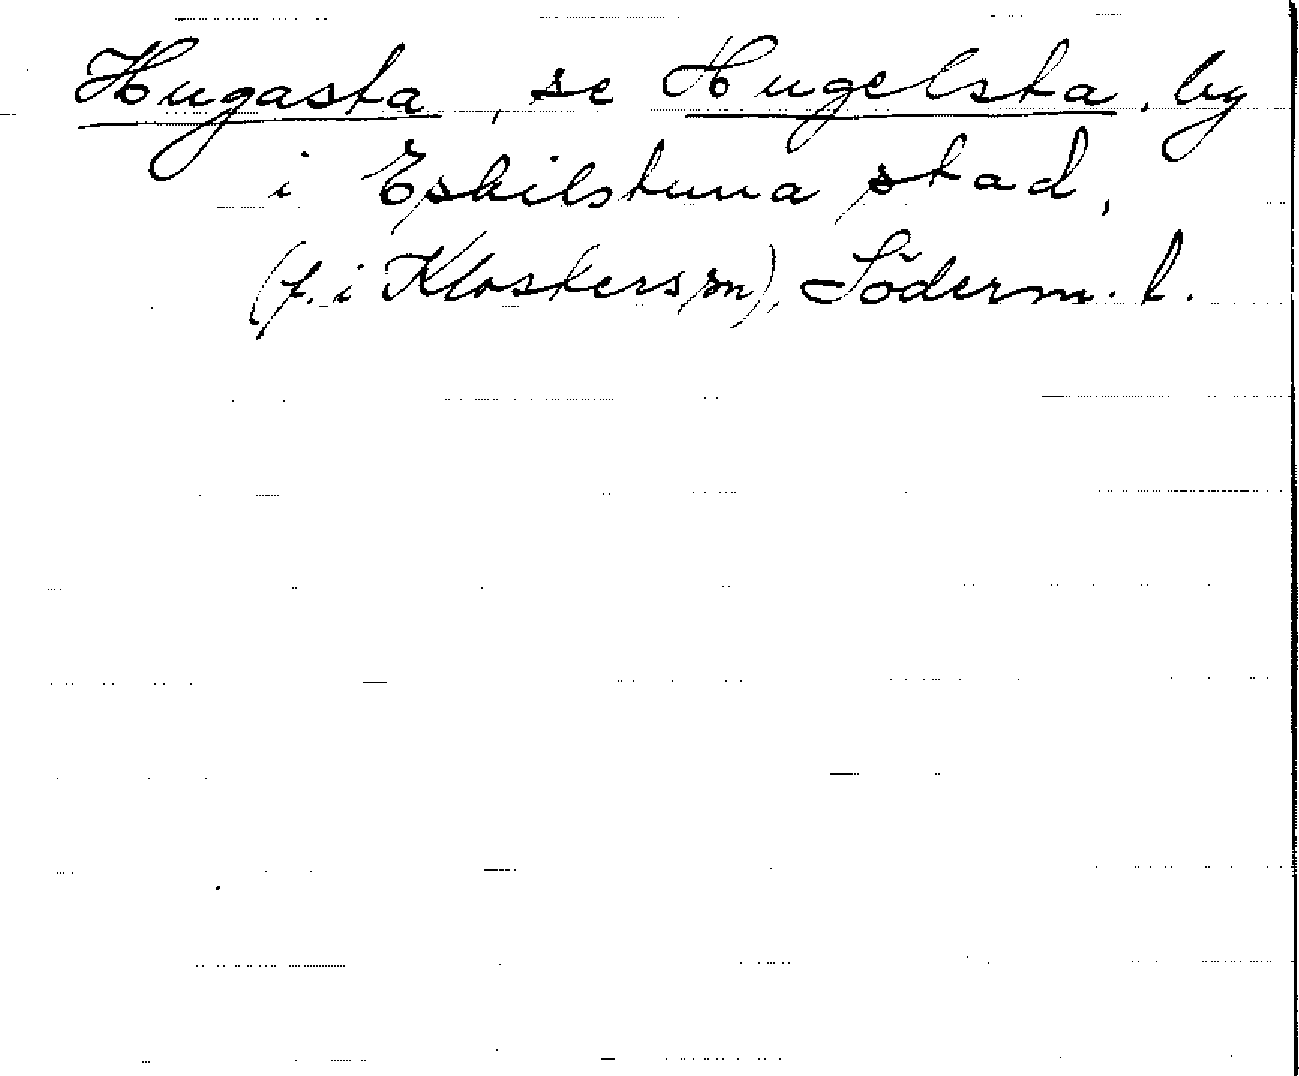 Hugasta, se Hugelsta, by
i Eskilstuna stad,
(f. i Klosters sn), Söderm. l.